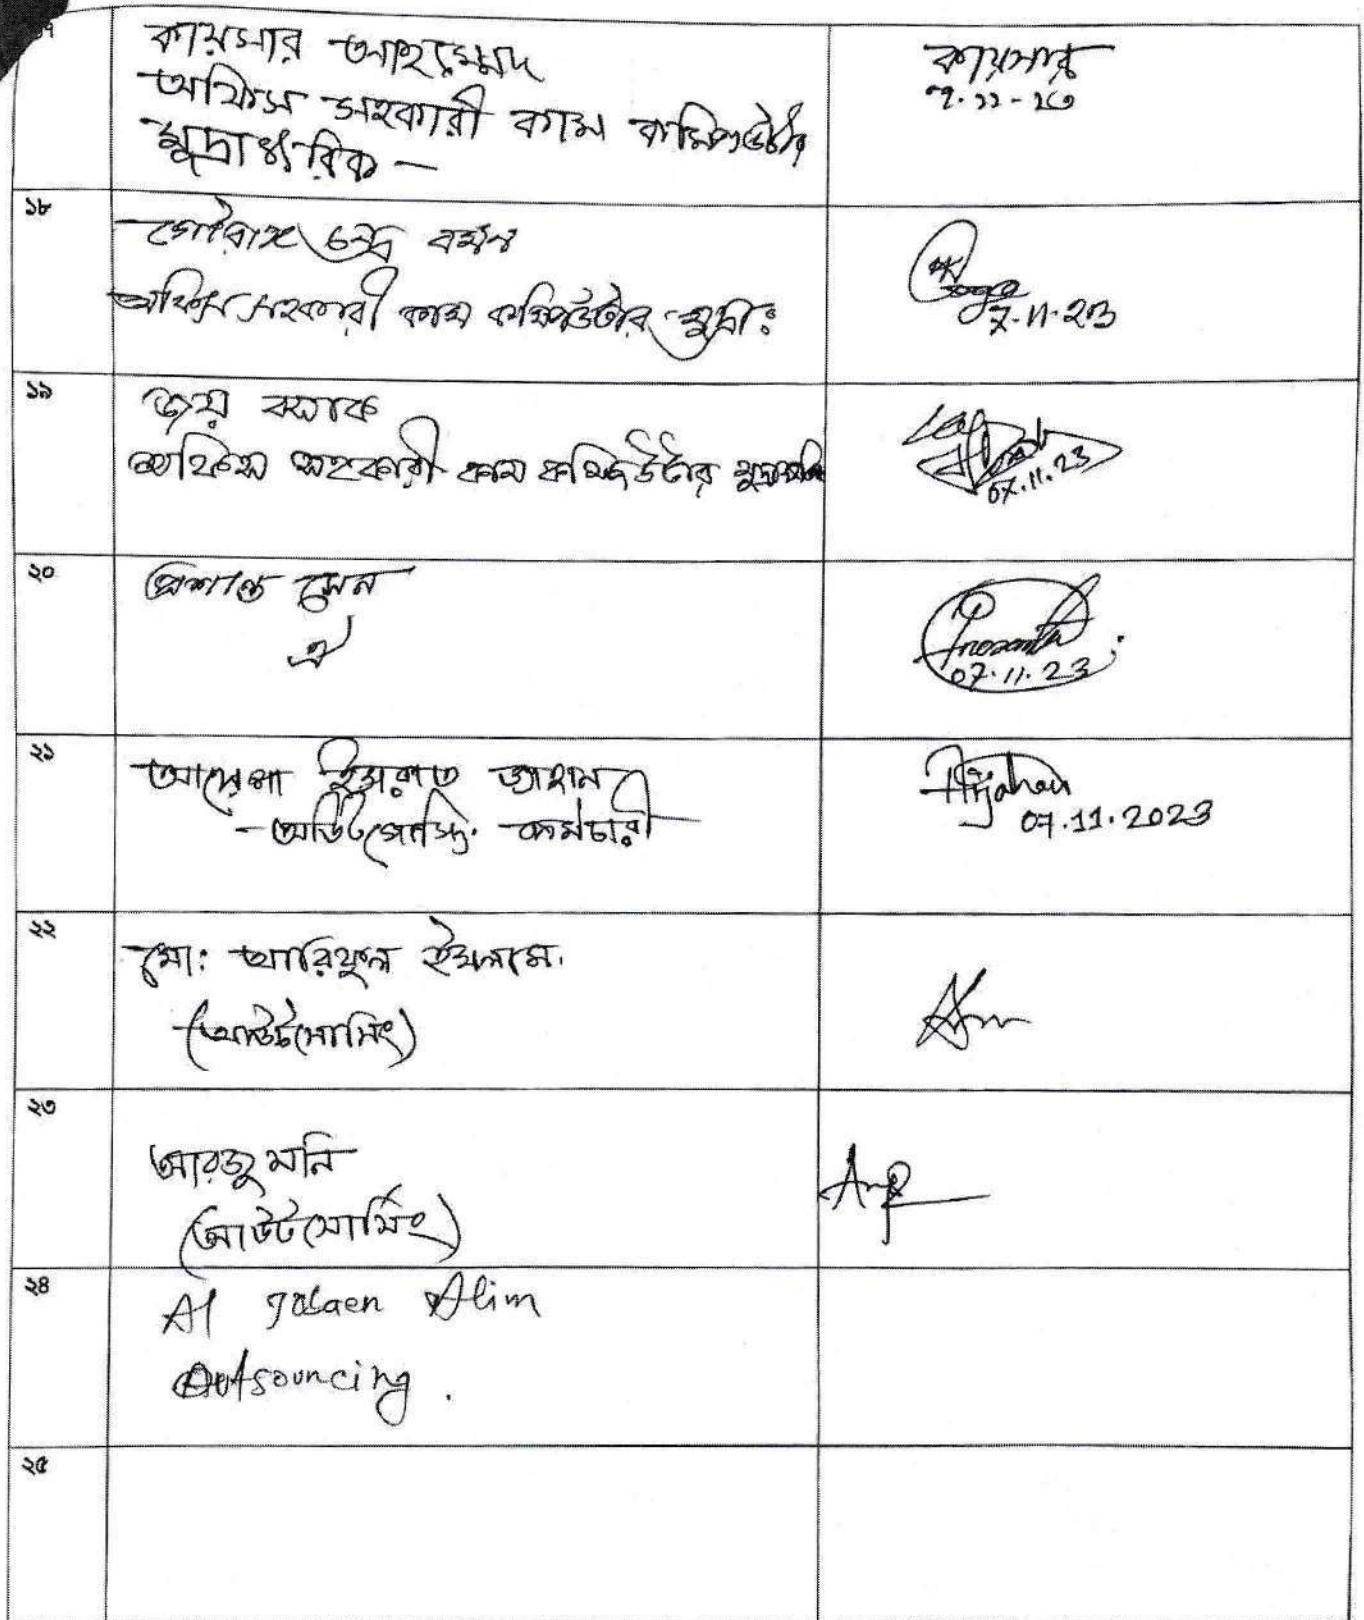 কায়সার আহম্মেদ
অফিস সহকারী কাম কম্পিউটার
মুদ্রাক্ষরিক -
কায়সার
৭.১১-২৩
১৮
গৌরাঙ্গ চন্দ্র বর্মন
অফিস সহকারী কাম কম্পিউটার মুদ্রাঃ
7.11.23
১৯
জয় বসাক
অফিস সহকারী কাম কম্পিউটার
07.11.23
২০
প্রশান্ত সেন
ঐ
Prosanta
07.11.23
২১
আয়েশা ইসরাত জাহান
আউটসোর্সিং কর্মচারী
07.11.2023
২২
মো: আরিফুল ইসলাম
(আউটসোর্সিং)
২৩
আরজু মনি
(আউটসোর্সিং)
২৪
Al Alim
Outsourcing.
২৫